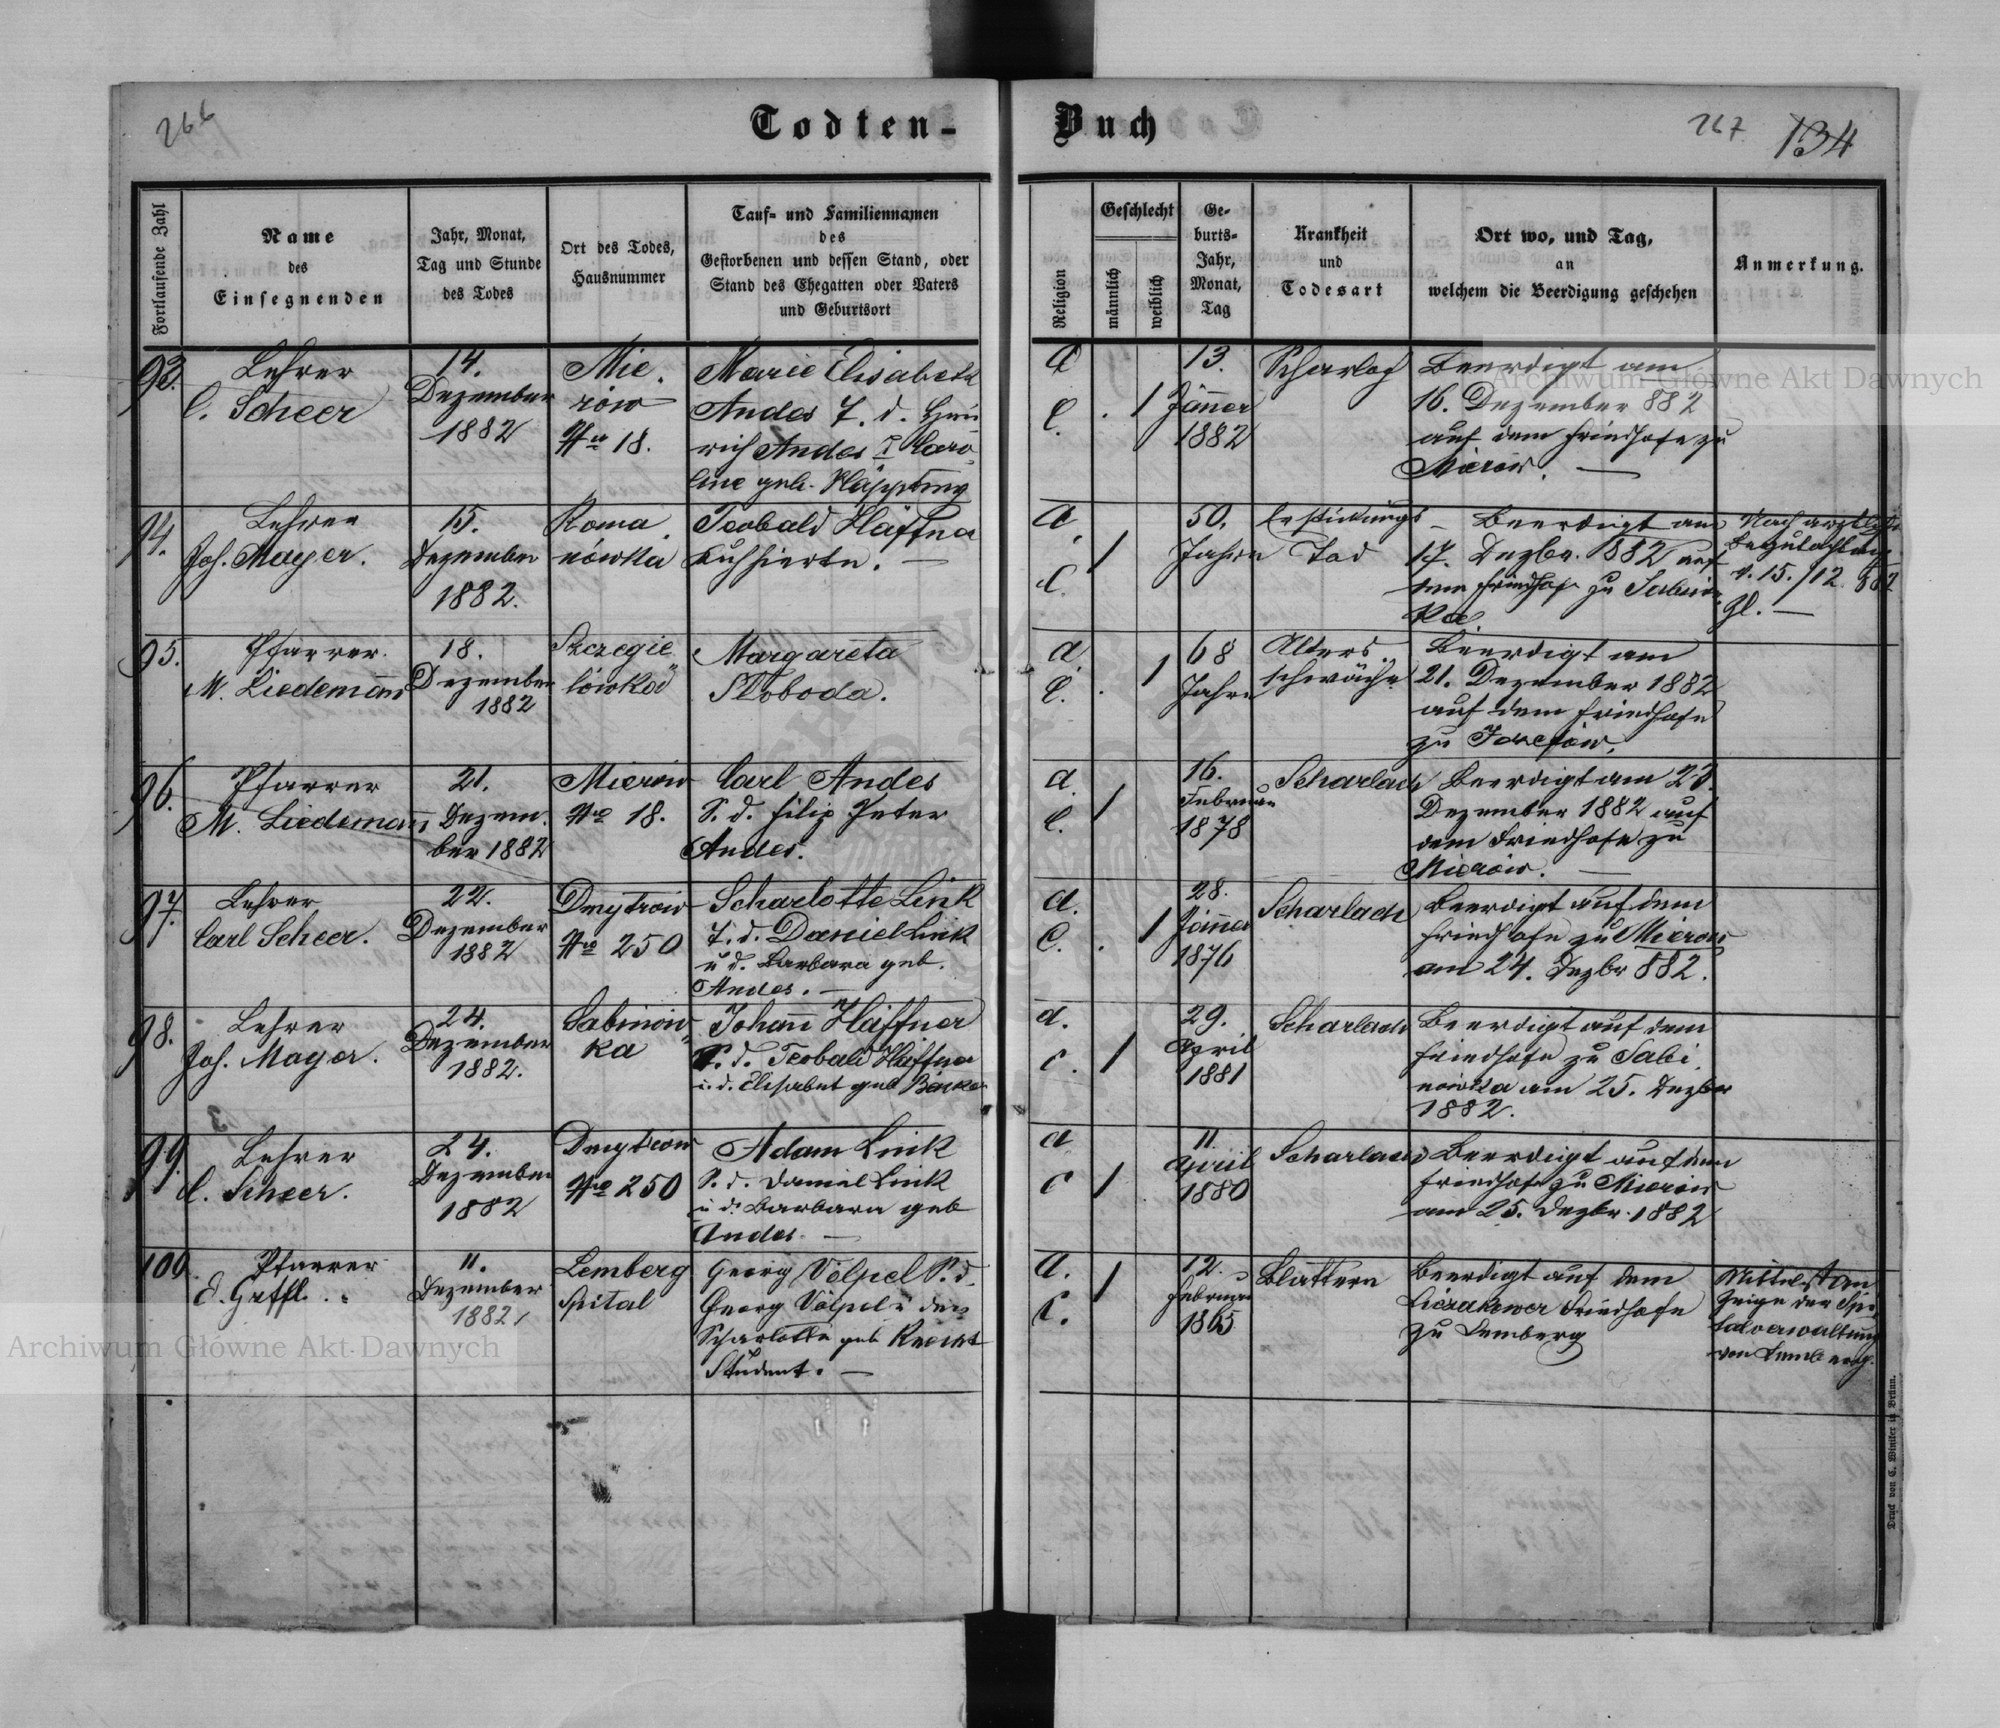 266
Todten-
Buch
267
134
Fortlaufende Zahl
Name
des
Einsegnenden
Jahr, Monat,
Tag und Stunde
des Todes
Ort des Todes,
Hausnummer
Tauf- und Familiennamen
des
Gestorbenen und dessen Stand, oder
Stand des Ehegatten oder Vaters
und Geburtsort
Religion
Geschlecht
männlich
weiblich
Ge-
burts-
Jahr,
Monat,
Tag
Krankheit
und
Todesart
Ort wo, und Tag,
an
welchem die Beerdigung geschehen
Anmerkung.
93.
Lehrer
C. Scheer
14.
Dezember
1882
Mie
rów
Nro 18.
Marie Elisabeth
Andes T. d. Hein
rich Andes Caro
line geb.
A
C.
1
13.
Jänner
1882
Scharlach
Beerdigt am
16. Dezember 882
auf dem Friedhofe zu
Mierów.
94.
Lehrer
Joh. Mayer.
15.
Dezember
1882.
Roma
nówka
Teobald Häffner
A
C.
1
50.
Jahre
Erstickungs
Tod
Beerdigt am
17. Dezbr. 1882 auf
dem Friedhof zu Sabinów
ka
Nach
v. 15./12. 882
95.
Pfarrer
M. Liedemann
18.
Dezember
1882
Szczegie
lówka
Margareta
Sloboda.
A
C.
1
68
Jahre
Alters
schwäche
Beerdigt am
21. Dezember 1882
auf dem Friedhofe
zu Josefow.
96.
Pfarrer
M. Liedemann
21.
Dezem.
ber 1882
Mierów
Nro 18.
Carl Andes
S. d. Filip Peter
Andes.
A.
C.
1
16.
Februar
1878
Scharlach
Beerdigt am 23.
Dezember 1882 auf
dem Friedhofe zu
Mierów.
97.
Lehrer
Carl Scheer.
22.
Dezember
1882
Dmytrow
Nro 250
Scharlotte Link
T. d. Daniel Link
u d. Barbara geb.
Andes.
A.
C.
1
28.
Jänner
1876
Scharlach
Beerdigt auf dem
Friedhofe zu Mierow
am 24. Dezbr 882.
98.
Lehrer
Joh. Mayer.
24.
Dezember
1882.
Sabinow
ka
Johann Häffner
S. d. Teobald Häffner
u. d. Elisabet geb
A.
C.
1
29.
April
1881
Scharlach
Beerdigt auf dem
Friedhofe zu Sabi
nowka am 25. Dezber
1882.
99.
Lehrer
C. Scheer.
24.
Dezember
1882
Dmytrow
Nro 250
Adam Link
S. d. Daniel Link
u d. Barbara geb
Andes.
A
C
1
11.
April
1880
Scharlach
Beerdigt auf dem
Friedhofe zu Mierow
am 25. Dezbr. 1882
100
Pfarrer
11.
Dezember
1882
Lemberg
Spital
Georg Völpel S. d.
Georg Völpel u der
Scharlotte geb
Student.
A.
C.
1
12.
Februar
1865
Blattern
Beerdigt auf dem
Friedhofe
zu Lemberg
Mittelst An
zeige der Spi
talverwaltung
von Lemberg.
Druck von C. Winiker in Brünn.
Archiwum Główne Akt Dawnych
Archiwum Główne Akt Dawnych